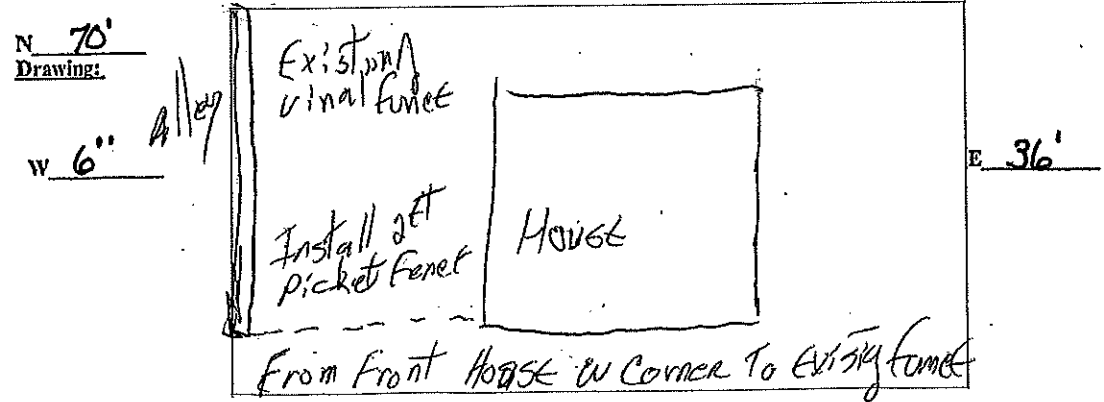 N 70'
Drawing:
Alley
W 6"
E 36'
Existong
vinal funce
Install 2ft
picket Fence
House
From Front House W Corner To Exisig funce